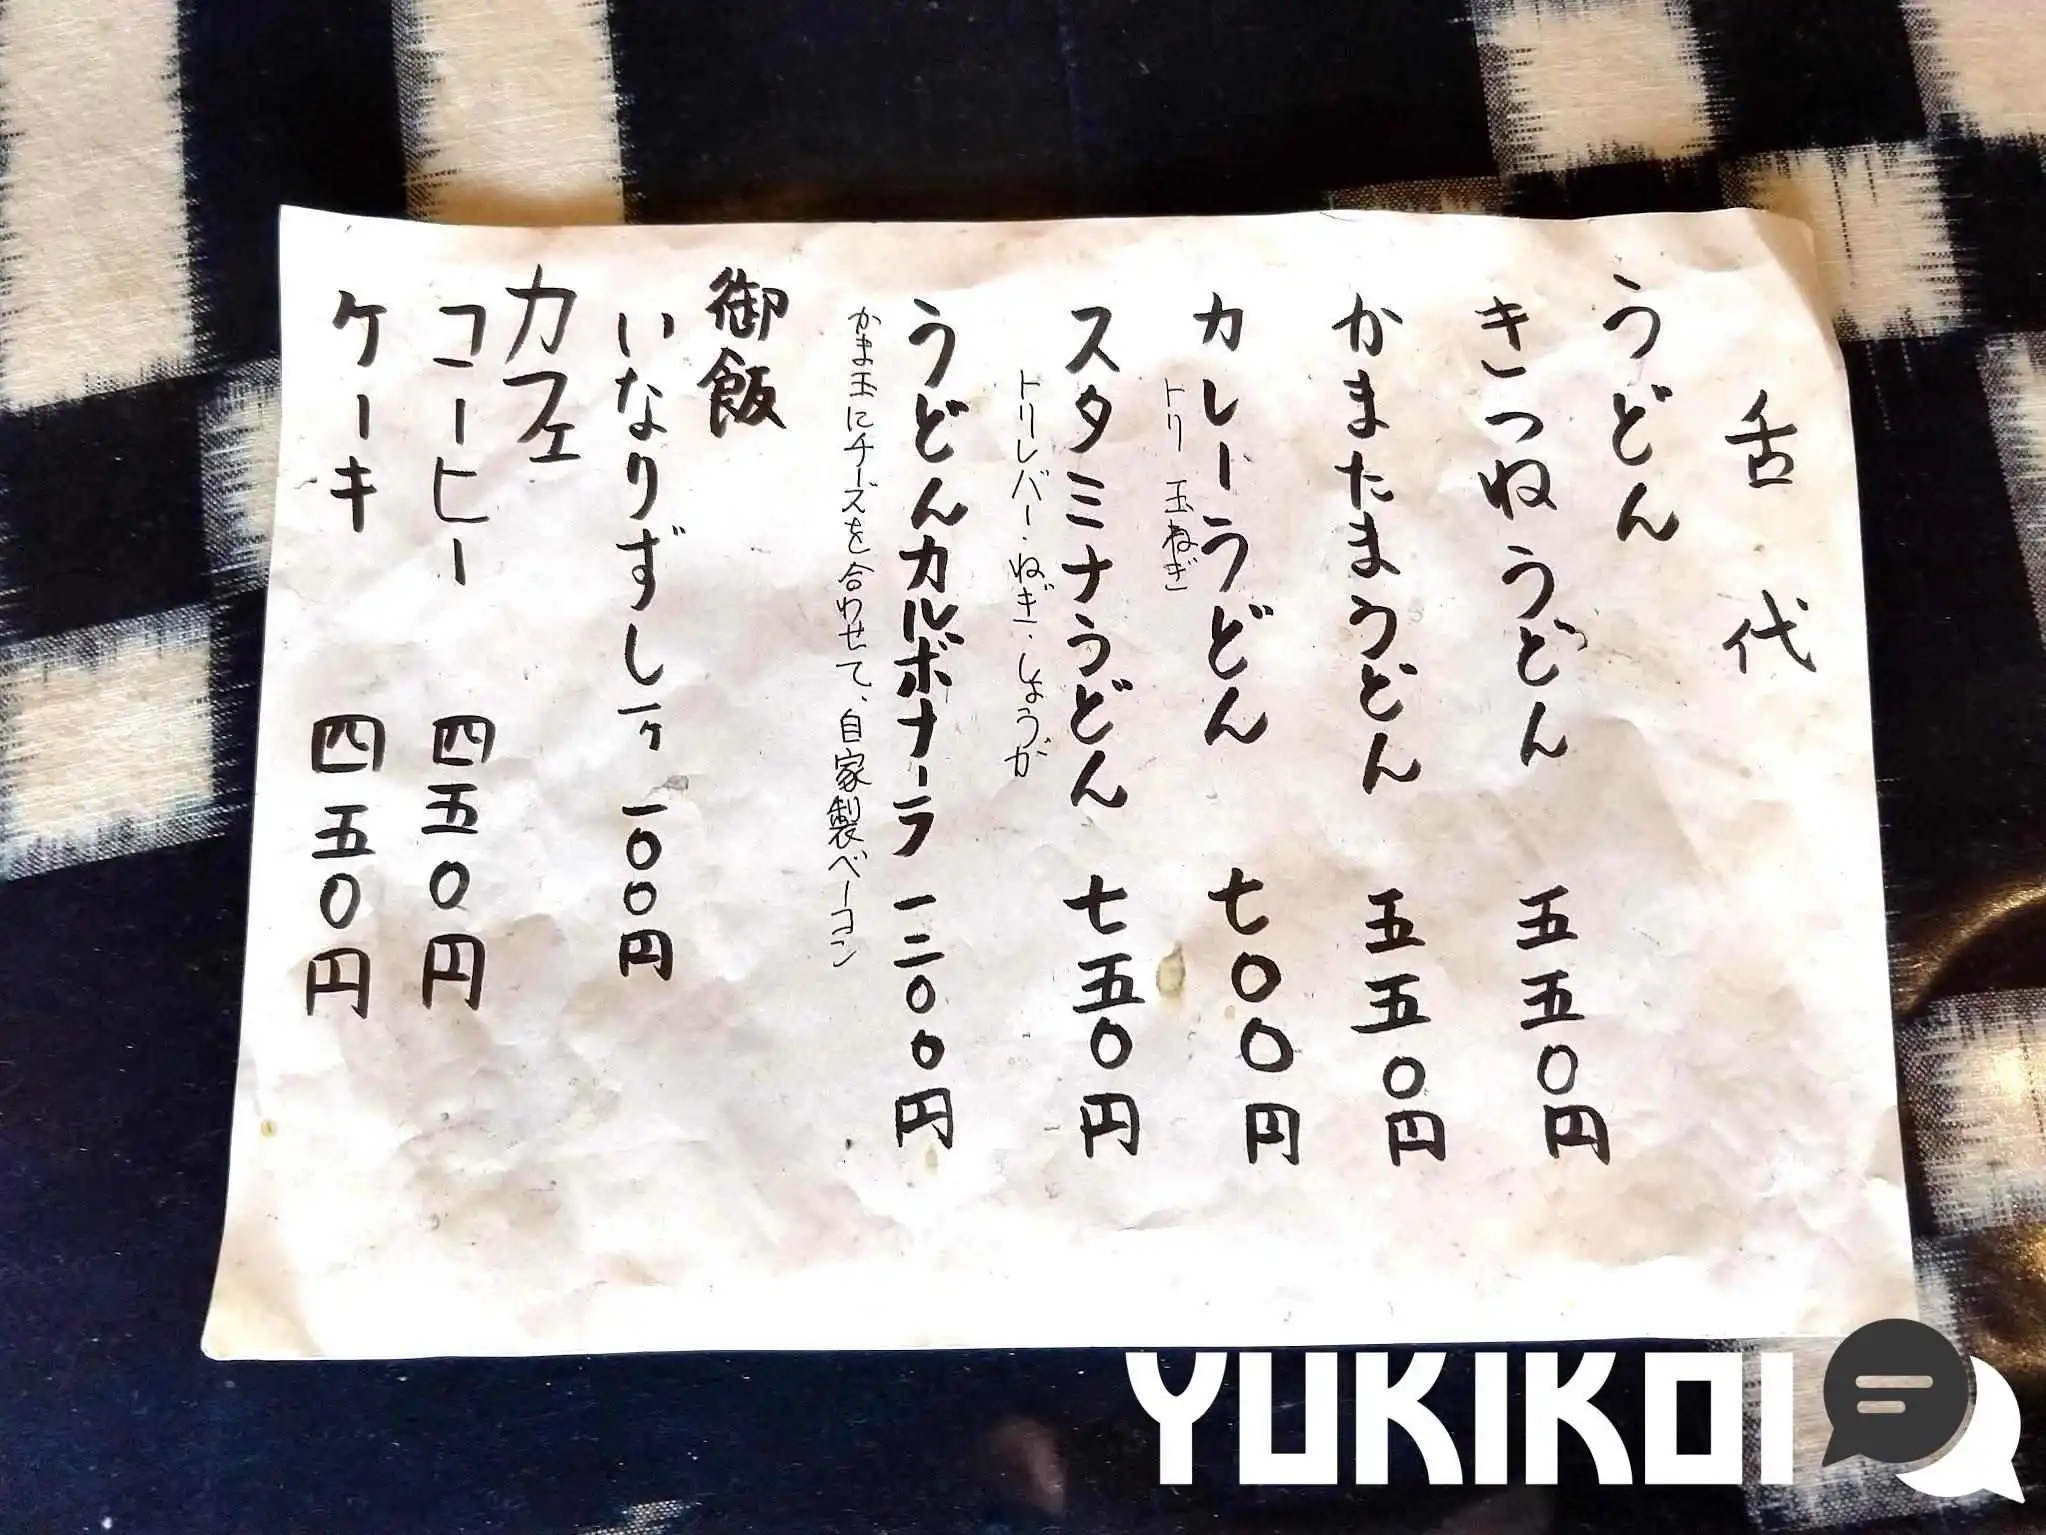 舌代
うどん
きつねうどん 五五〇円
かまたまうどん 五五〇円
カレーうどん 七〇〇円
トリ 玉ねぎ
スタミナうどん 七五〇円
トリレバー・ねぎ・しょうが
うどんカルボナーラ 一二〇〇円
かま玉にチーズを合わせて、自家製ベーコン
御飯
いなりずし一ヶ 一〇〇円
カフェ
コーヒー 四五〇円
ケーキ 四五〇円
YUKIKOI